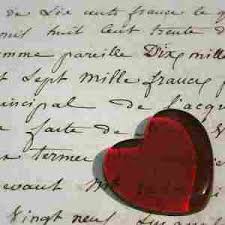 de Six cents francs le q
mil huit cent trente d
omme pareille Dix mille
t Sept mille francs p
incipal de l'acqu
faute de
termes
devant
Vingt neuf